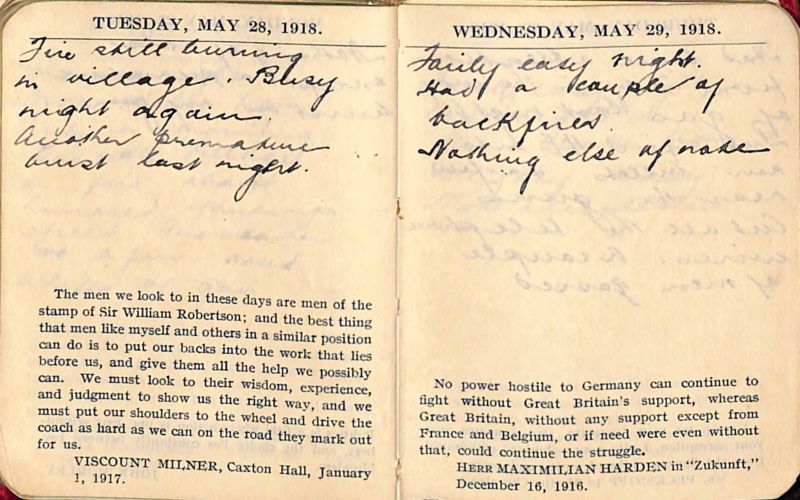 TUESDAY, MAY 28, 1918.
Fire still burning
in village. Busy
night again.
Another premature
burst last night.
The men we look to in these days are men of the
stamp of Sir William Robertson; and the best thing
that men like myself and others in a similar position
can do is to put our backs into the work that lies
before us, and give them all the help we possibly
can. We must look to their wisdom, experience,
and judgment to show us the right way, and we
must put our shoulders to the wheel and drive the
coach as hard as we can on the road they mark out
for us.
VISCOUNT MILNER, Caxton Hall, January
1, 1917.
WEDNESDAY, MAY 29, 1918.
Fairly easy night.
Had a couple of
backfires
Nothing else of note
No power hostile to Germany can continue to
fight without Great Britain's support, whereas
Great Britain, without any support except from
France and Belgium, or if need were even without
that, could continue the struggle.
HERR MAXIMILIAN HARDEN in "Zukunft,"
December 16, 1916.